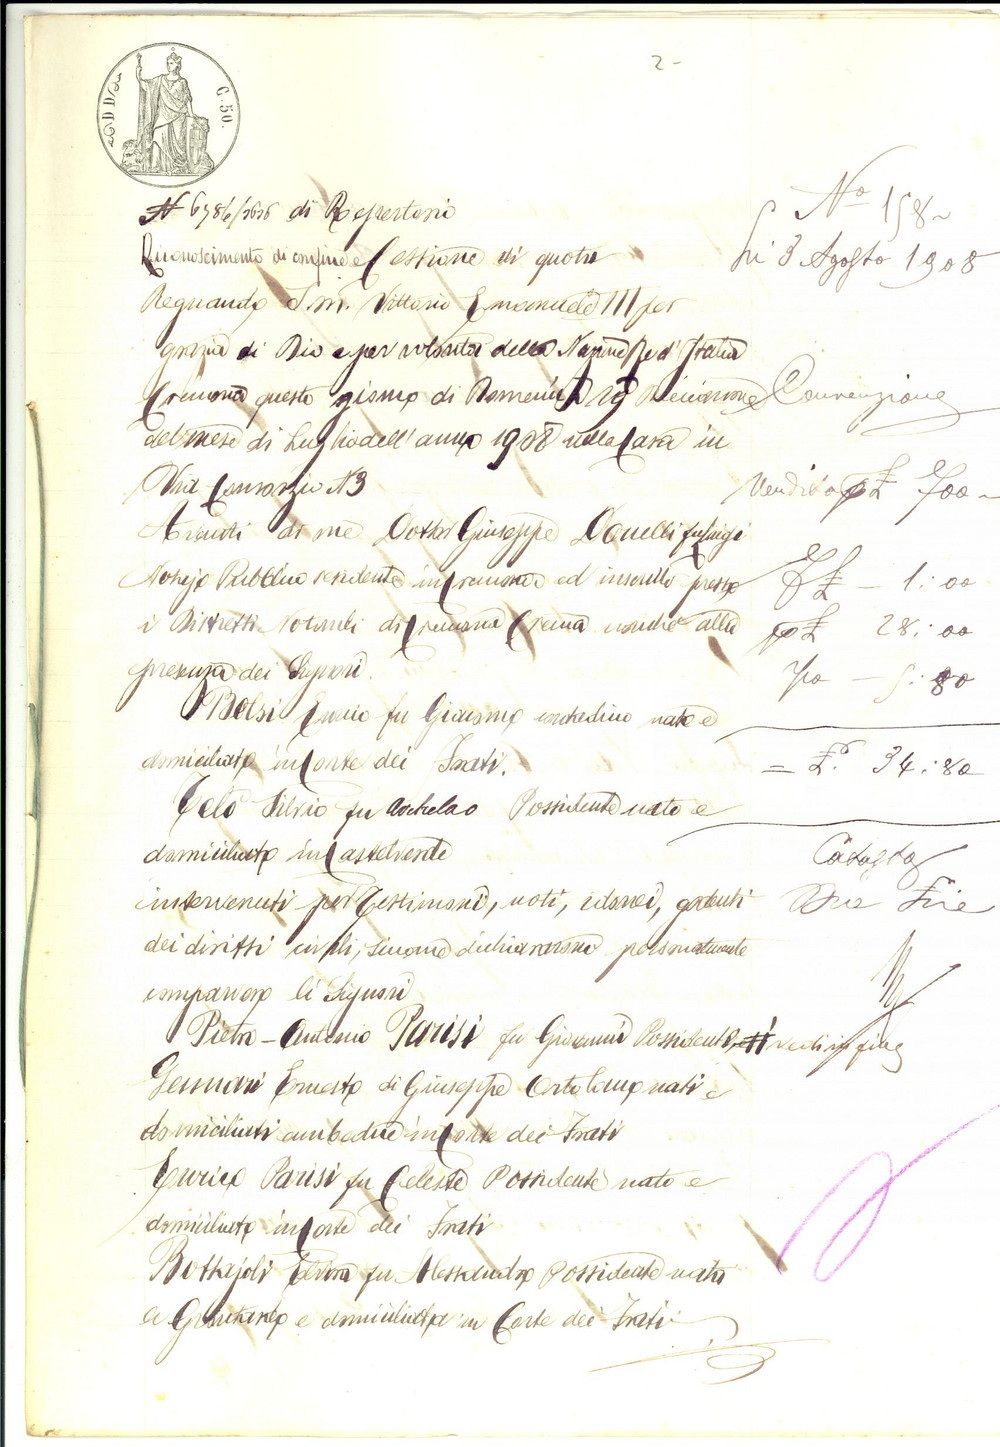 2-
C. 50.
N 6786/3626 di Repertorio
Riconoscimento di confine e Cessione di quota
Regnando S. M. Vittorio Emanuele III per
grazia di Dio e per volontà della Nazione Re d'Italia
Cremona questo giorno di Domenica 19 Diciannove
del mese di Luglio dell'anno 1908 nella Casa in
Via Consorzio N 3
Avanti di me Dottor Giuseppe Donelli fu Luigi
Notajo Pubblico residente in Cremona ed inscritto presso
i Distretti Notarili di Cremona Crema nonché alla
presenza dei Signori.
Bolsi Ennio fu Giacomo contadino nato e
domiciliato in Corte dei Frati.
Telò Silvio fu Archelao Possidente nato e
domiciliato in Castelverde
intervenuti per Testimoni, noti, idonei, godenti
dei diritti civili, siccome dichiararono personalmente
comparvero li Signori
Pietro-Antonio Parisi fu Giovanni Possidente,
Gennari Ernesto di Giuseppe Ortolano nati e
domiciliati ambedue in Corte dei Frati
Enrico Parisi fu Celeste Possidente nato e
domiciliato in Corte dei Frati
Bottajoli Elvira fu Alessandro Possidente nata
a Grontardo e domiciliata in Corte dei Frati
No 158
Li 3 Agosto 1908
Convenzione
Vendita £ 700
£ 1:00
£ 28:00
5:80
= £. 34:80
Catasto
Due Lire
vedi in fine